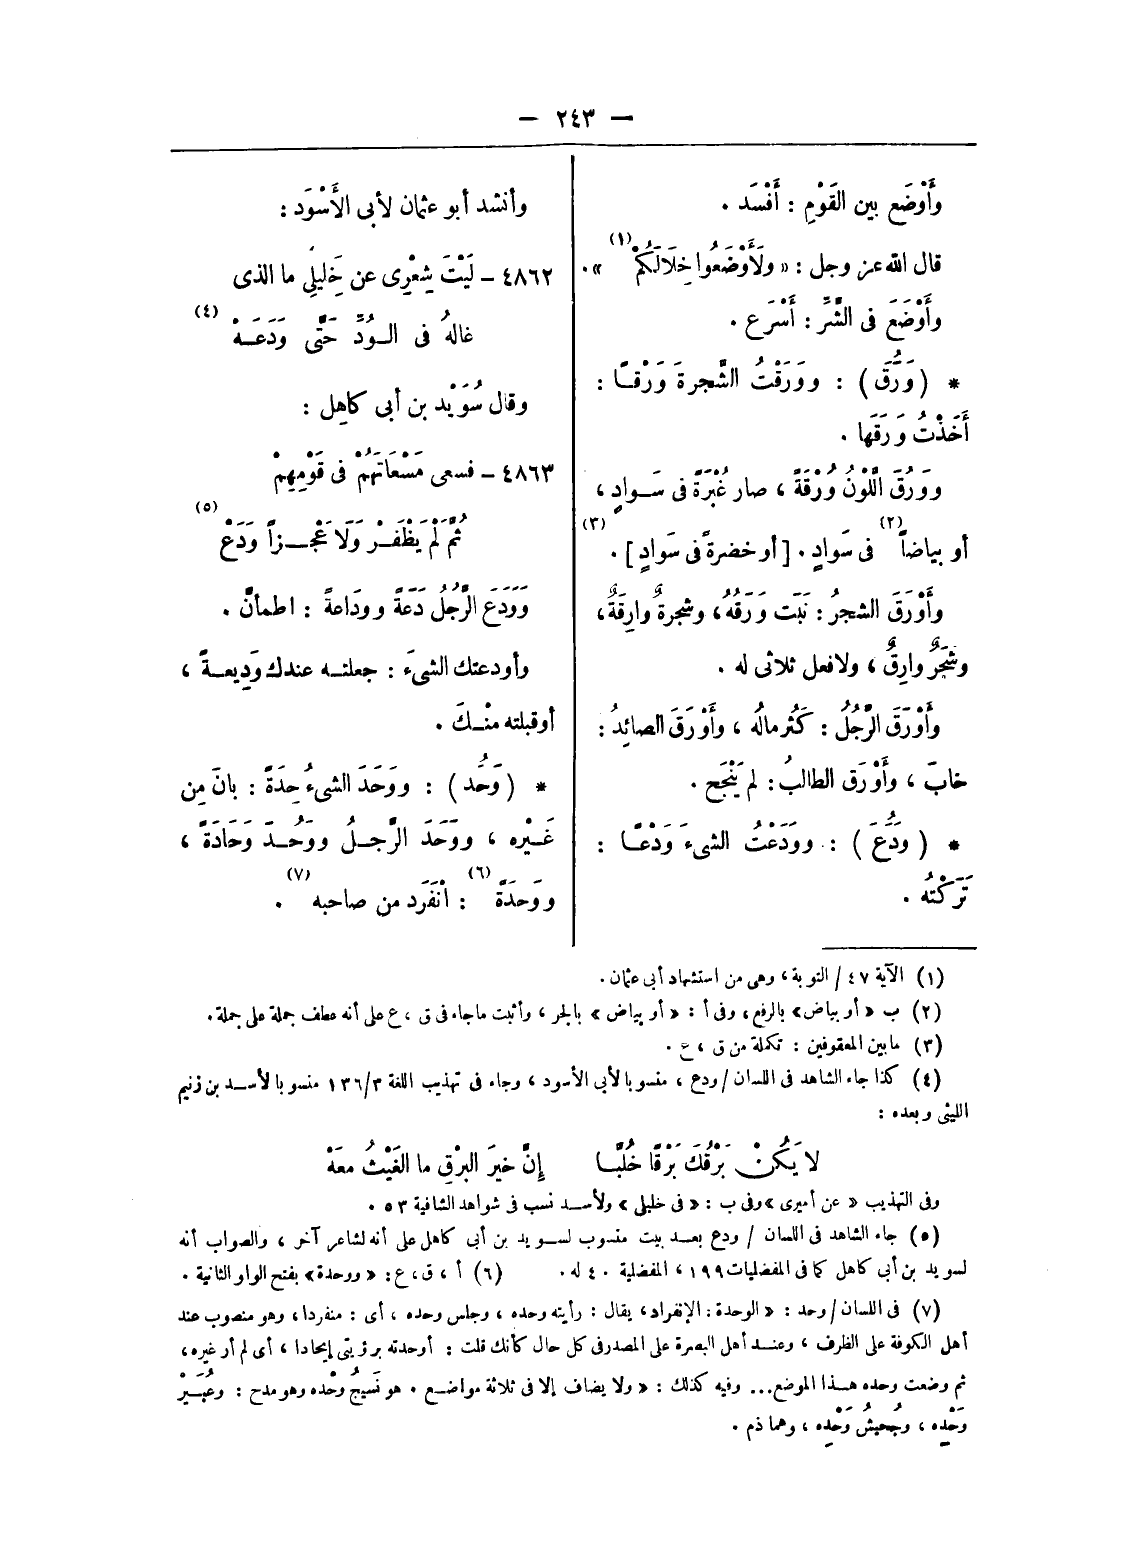 — ٢٤٣ —
وأَوْضَع بين القَوْمِ : أَفْسَد .
قال الله عز وجل : « ولَأَوْضَعُوا خِلَالَكُمْ (١) » .
وأَوْضَعَ فى الشَّرِّ : أَسْرَع .
* ( وَرُّق ) : ووَرَقْتُ الشَّجرةَ وَرْقًا :
أَخَذْتُ وَرَقَها .
ووَرُقَ اللَّونُ وُرْقَةً ، صار غُبْرَةً فى سَوادٍ ،
أو بياضاً (٢) فى سَوادٍ . [ أو خضرةً فى سَوادٍ ] (٣) .
وأَوْرَقَ الشجرُ : نَبَت وَرَقُهُ ، وشجرةٌ وارِقَةٌ ،
وشَجَرٌ وارِقٌ ، ولا فعل ثلاثى له .
وأَوْرَقَ الرَّجُلُ : كَثُر مالُه ، وأَوْرَقَ الصائِدُ :
خابَ ، وأَوْرَق الطالبُ : لم يَنْجَح .
* ( ودَُعَ ) : وودَعْتُ الشىءَ وَدْعًا :
تَرَكْتُه .
وأنشد أبو عثمان لأبى الأَسْوَد :
٤٨٦٢ – لَيْتَ شِعْرِى عن خَلِيلِى ما الذى
غالهُ فى الوُدِّ حَتَّى وَدَعَهْ (٤)
وقال سُوَيْد بن أبى كاهِل :
٤٨٦٣ – فسعى مَسْعَاتَهُمْ فى قَوْمِهِمْ
ثُمَّ لَمْ يَظْفَرْ وَلَا عَجْزاً وَدَعْ (٥)
ووَدَعَ الرَّجُلُ دَعَةً ووَداعةً : اطمأنَّ .
وأودعتك الشىءَ : جعلته عندك وَدِيعةً ،
أو قبلته مِنْكَ .
* ( وَحَُد ) : ووَحَدَ الشىءُ حِدَةً : بانَ مِن
غَيْرِه ، ووَحَدَ الرَّجلُ ووَحُدَ وَحَادَةً ،
ووَحدَةً (٦) : أنْفَرَد من صاحبه (٧) .
(١) الآية ٤٧ / التوبة ، وهى من استشهاد أبى عثمان .
(٢) ب « أو بياض » بالرفع ، وفى أ : « أو بياض » بالجر ، وأثبت ما جاء فى ق ، ع على أنه عطف جملة على جملة .
(٣) ما بين المعقوفين : تكملة من ق ، ع .
(٤) كذا جاء الشاهد فى اللسان / ودع ، منسوبا لأبى الأسود ، وجاء فى تهذيب اللغة ١٣٦/٣ منسوبا لأسد بن زنيم
الليثى وبعده :
لا يَكُنْ بَرْقُكَ بَرْقًا خُلَّبًا إنَّ خيرَ البرْقِ ما الغَيْثُ معَهْ
وفى التهذيب « عن أميرى » وفى ب : « فى خليلى » ولأسد نسب فى شواهد الشافية ٥٣ .
(٥) جاء الشاهد فى اللسان / ودع بعد بيت منسوب لسويد بن أبى كاهل على أنه لشاعر آخر ، والصواب أنه
لسويد بن أبى كاهل كما فى المفضليات ١٩٩ ، المفضلية ٤٠ له . (٦) أ ، ق ، ع : « ووحدة » بفتح الواو الثانية .
(٧) فى اللسان / وحد : « الوحدة : الإنفراد ، يقال : رأيته وحده ، وجلس وحده ، أى : منفردا ، وهو منصوب عند
أهل الكوفة على الظرف ، وعند أهل البصرة على المصدر فى كل حال كأنك قلت : أوحدته برؤيتى إيحادا ، أى لم أر غيره ،
ثم وضعت وحده هذا الموضع ... وفيه كذلك : « ولا يضاف إلا فى ثلاثة مواضع . هو نَسيجُ وحْده وهو مدح : وعُيَيْرُ
وَحْدِه ، وجُحيشُ وَحْدِه ، وهما ذم .